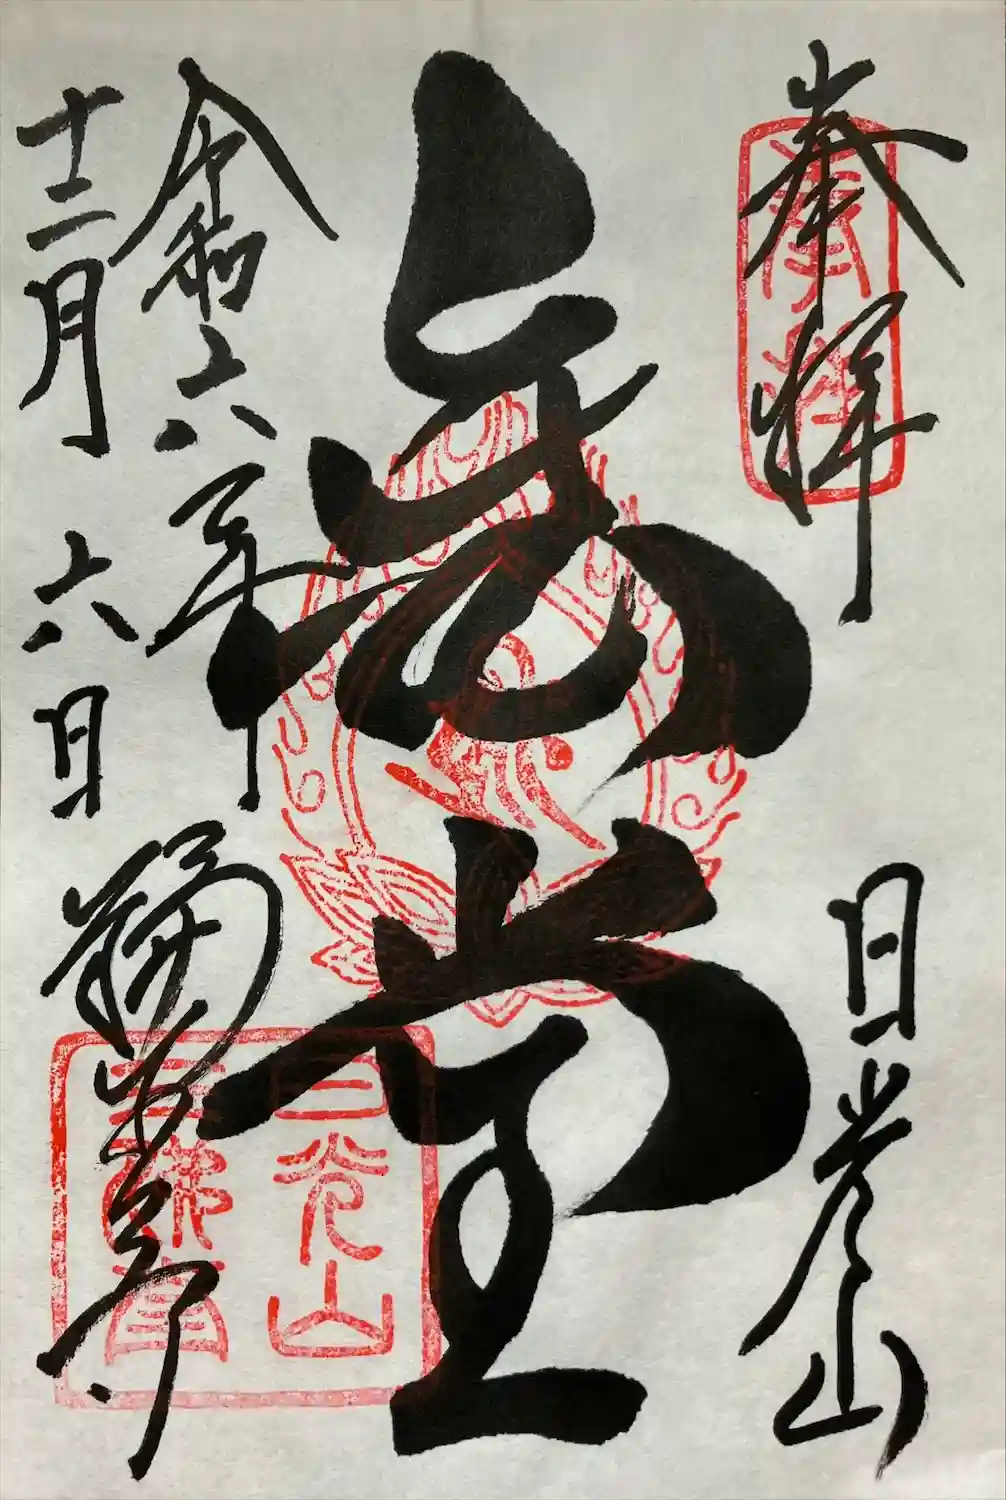 奉拝
日光山
堂
令和六年
十二月六日
輪王寺
奉拝
日光山
三佛堂